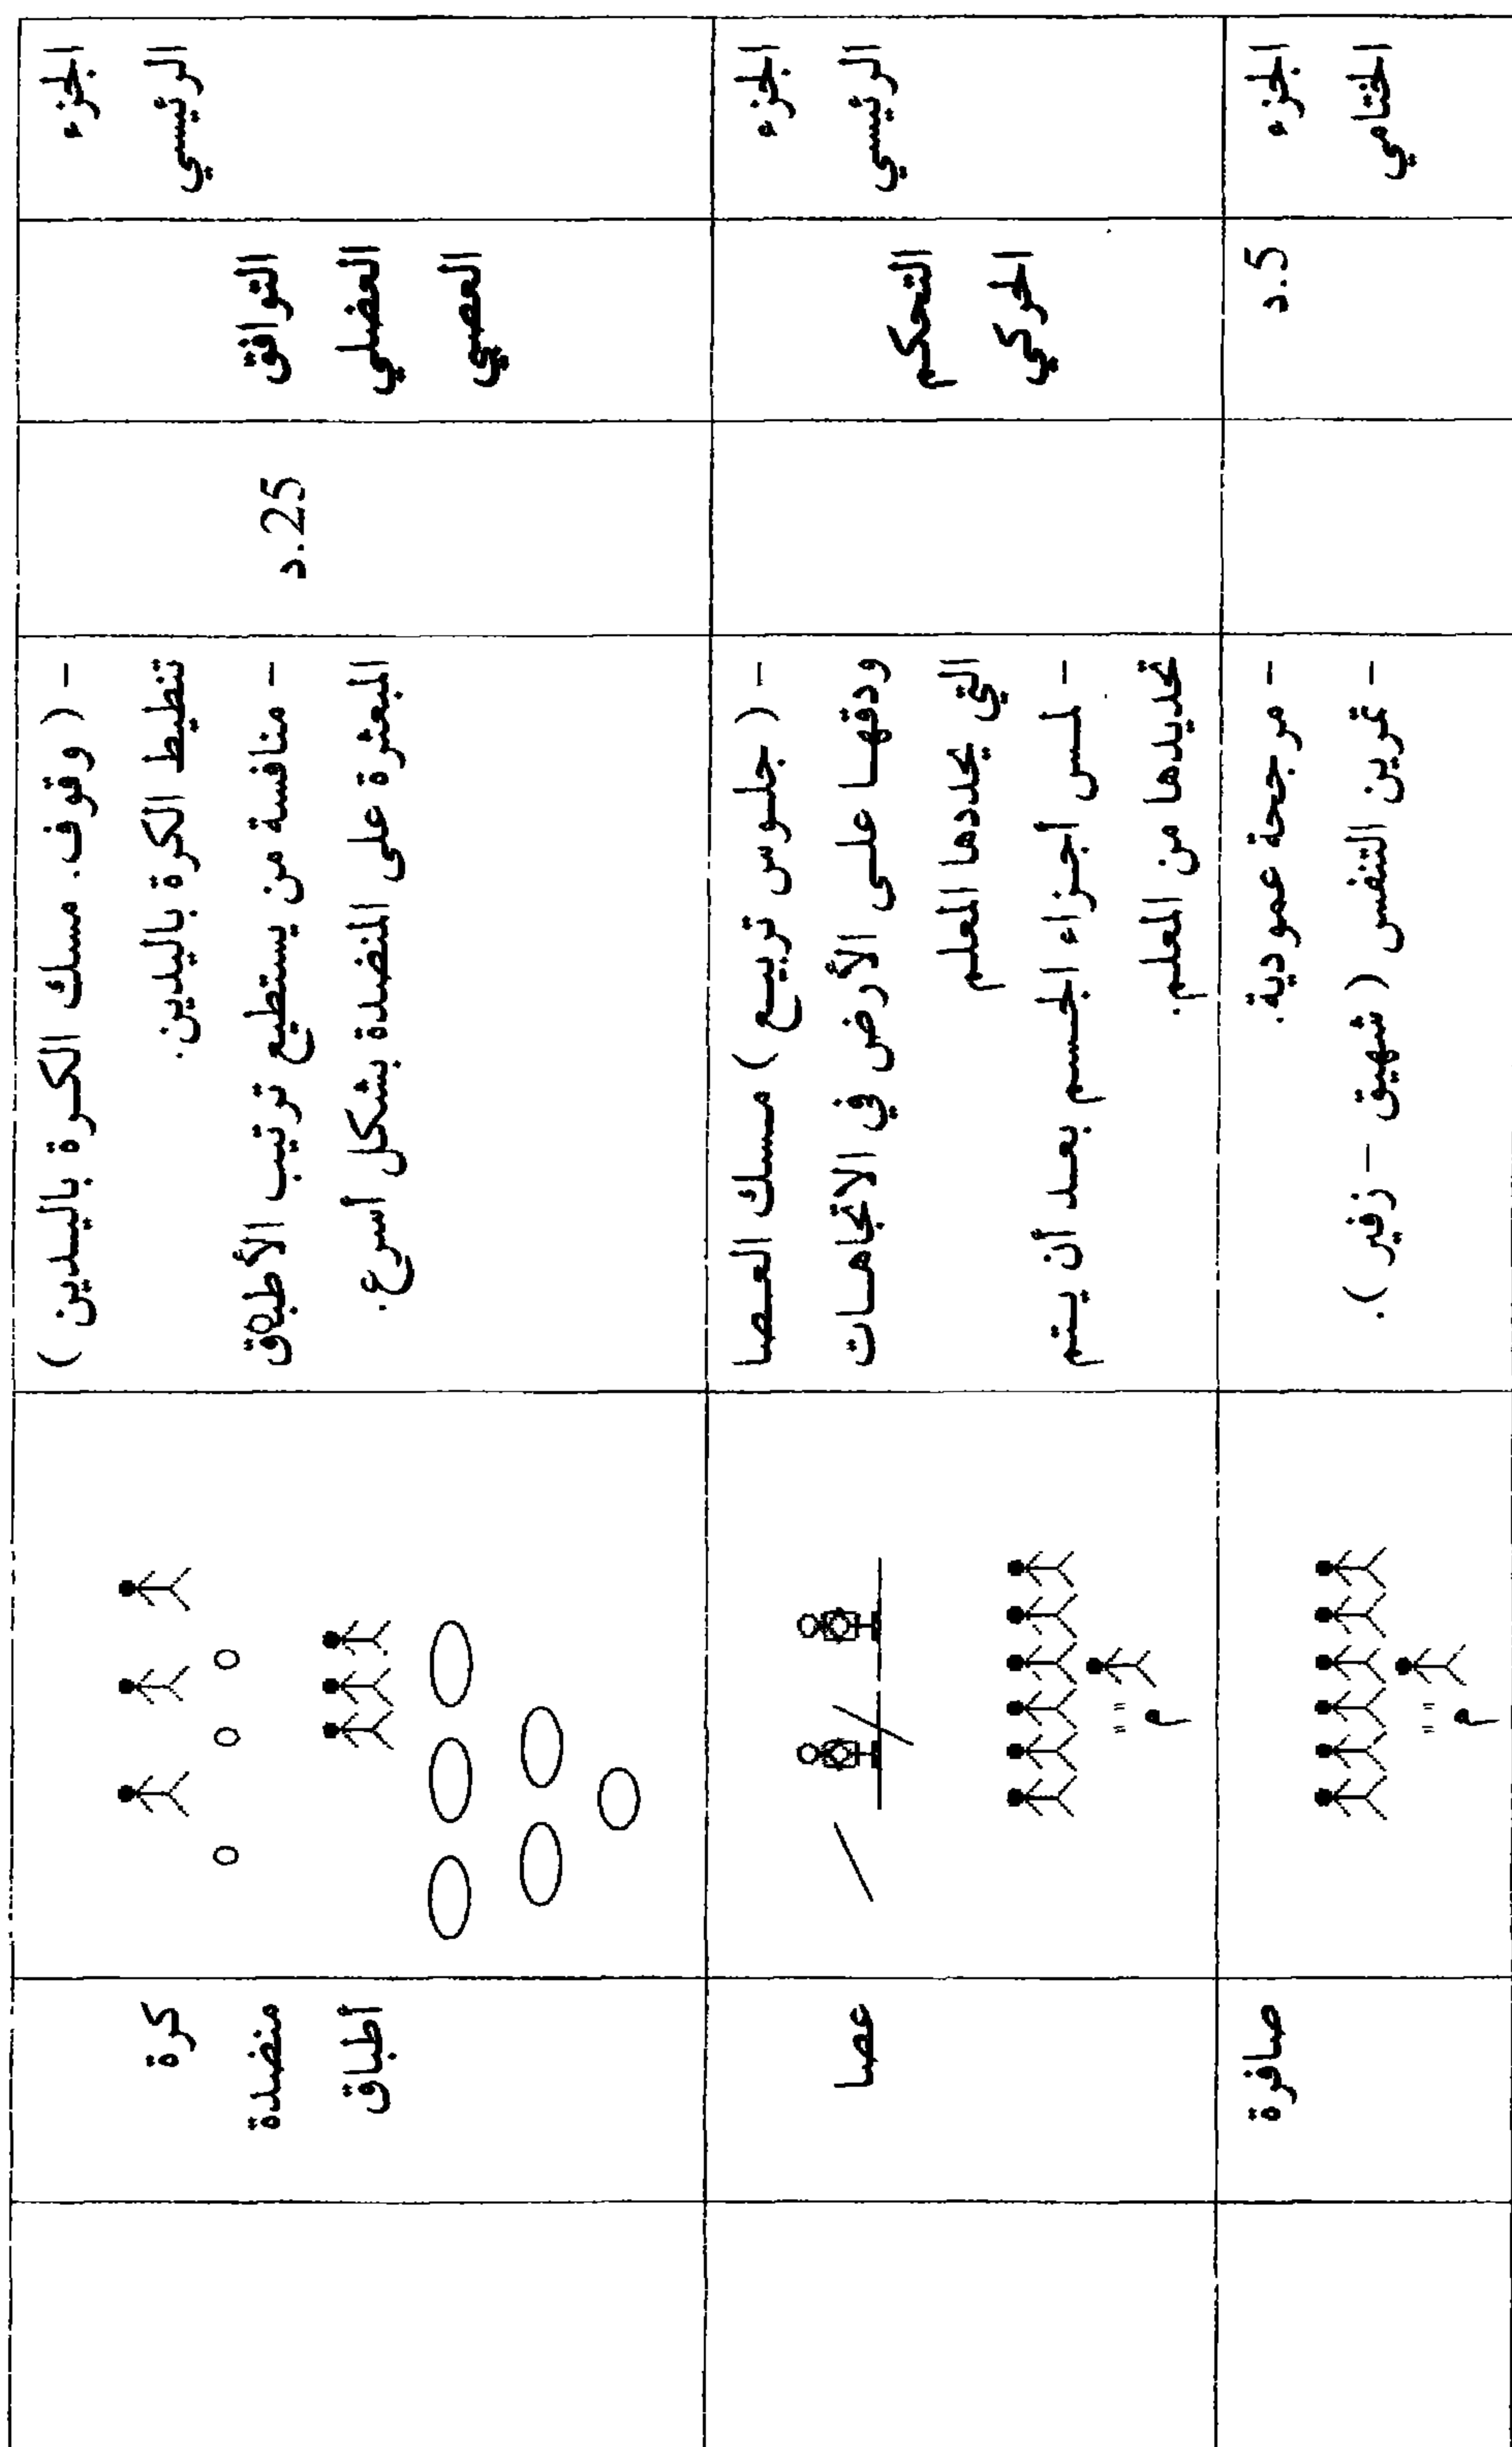 الجزء
الرئيسي
التوافق
العضلي
العصبي
25.د
- ( وقوف. مسك الكرة باليدين )
تنطيط الكرة باليدين.
- منافسة من يستطيع ترتيب الأطباق
المبعثرة على المنضدة بشكل أسرع.
كرة
منضدة
أطباق
الجزء
الرئيسي
التحكم
الحركي
- ( جلوس تربيع ) مسك العصا
ودقها على الأرض في الاتجاهات
التي يحددها المعلم
- لمس أجزاء الجسم بعد أن يتم
تحديدها من المعلم.
م
عصا
الجزء
الختامي
5.د
- مرجحة عمودية.
- تمرين التنفس ( شهيق – زفير ).
م
صافرة